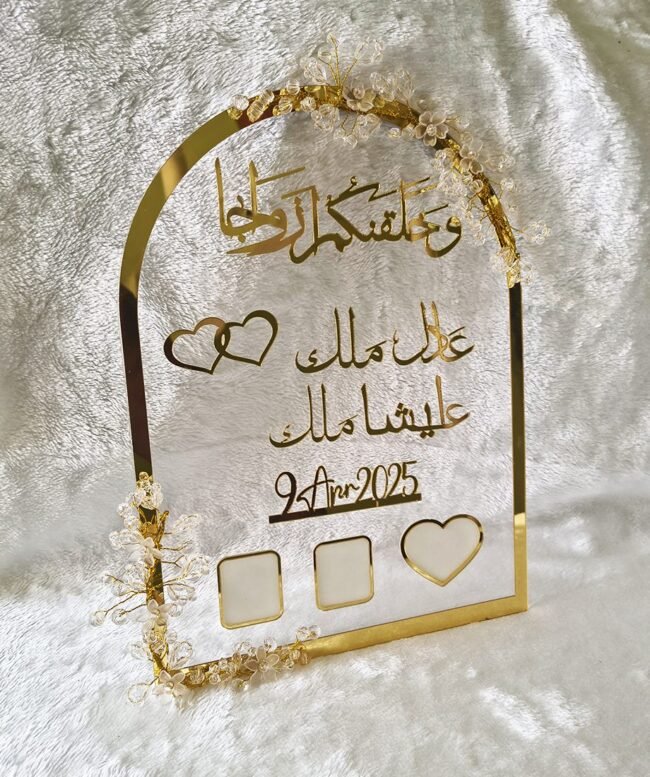 وخلقنكم ازواجا
عادل ملك
عایشا ملك
9 Apr 2025